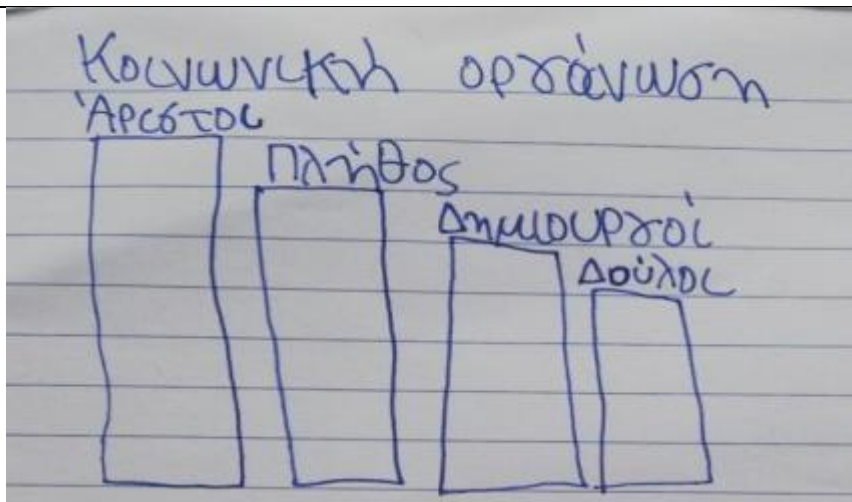 Κοινωνική οργάνωση
Άριστοι
Πλήθος
Δημιουργοί
Δούλοι